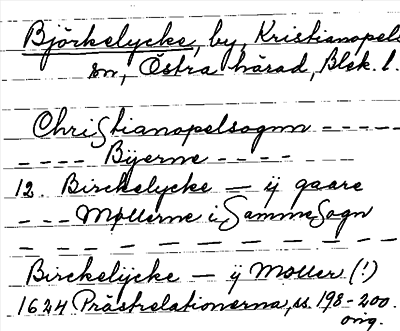 Björkelycke, by, Kristianopels
sn, Östra härad, Blek. l.
Christianopelsognn - - - - -
- - - - Byerne - - - -
12. Birckelycke — ij gaare
- - - Møllerne i Samme Sogn
- - - - - - - - - -
Birckelycke — ij Møller (!)
1624 Prästrelationerna, ss. 198-200.
orig.